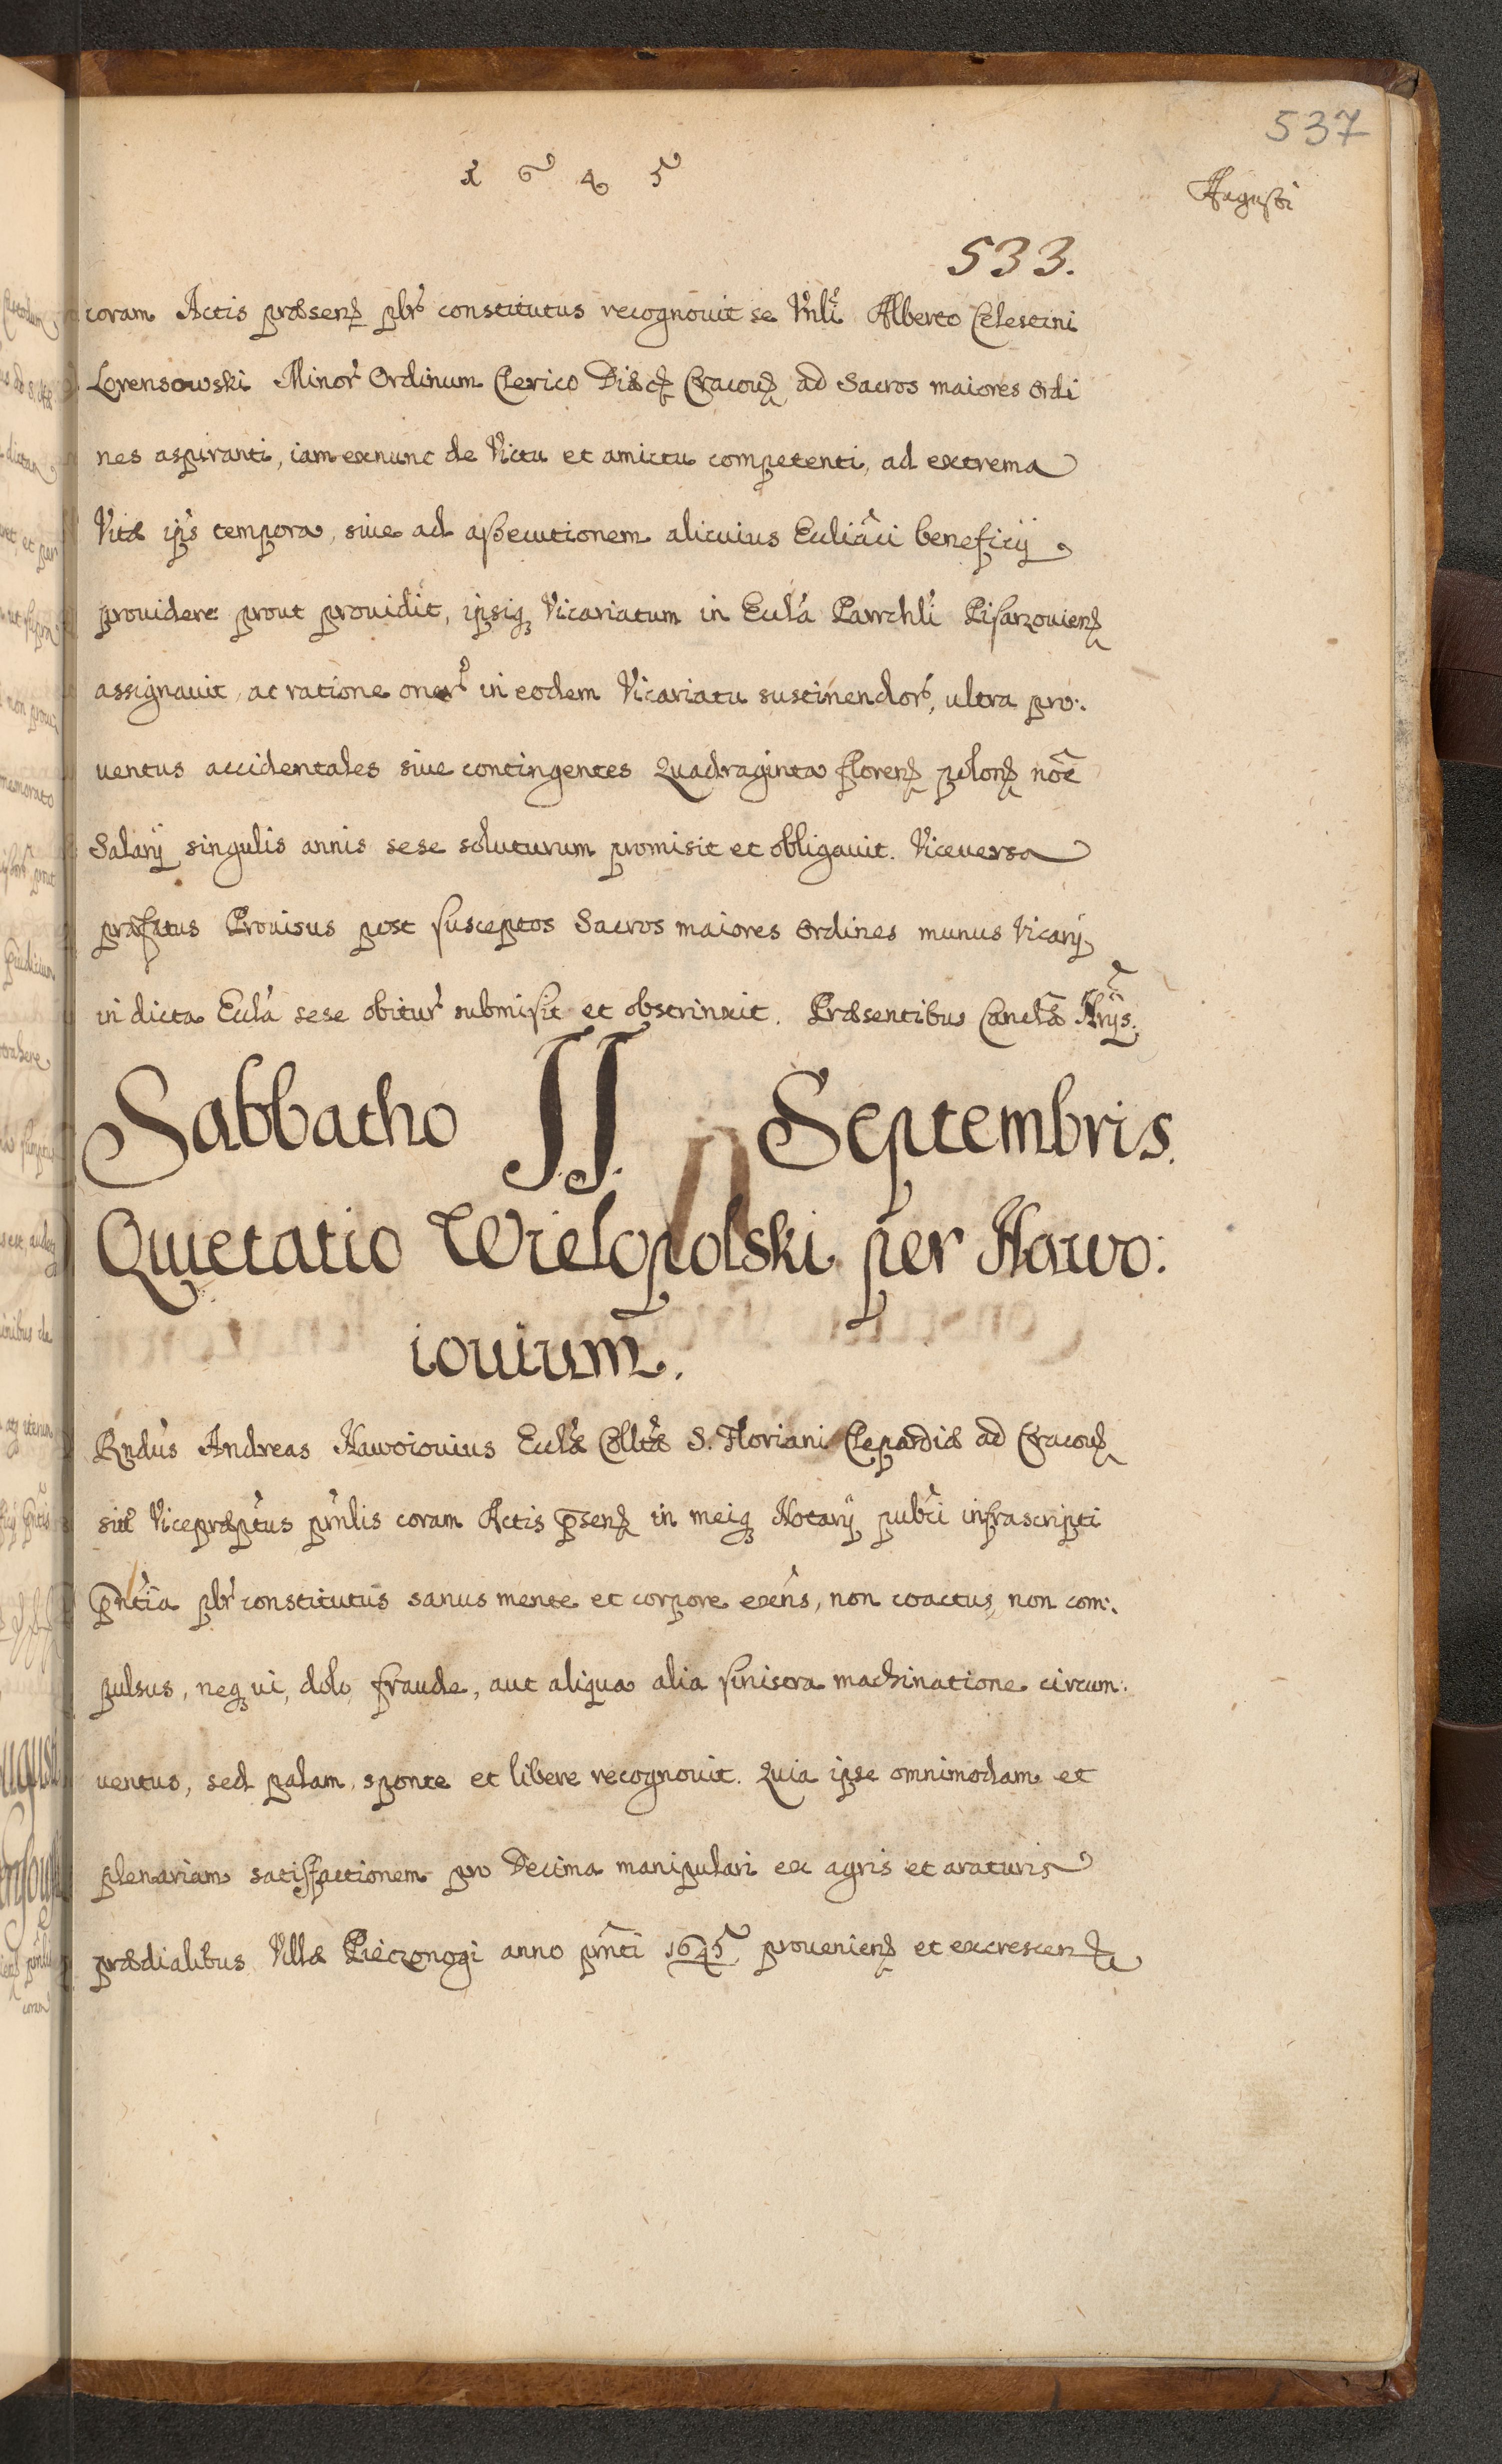 537
1 6 4 5
Augusti
533.
coram Actis præsen. pbr constitutus recognouit se Vnli Alberto Celestini
Lorensowski Minor. Ordinum Clerico Diæc. Cracou. ad Sacros maiores ordi
nes aspiranti, iam exnunc de Victu et amictu competenti, ad extrema
Vitæ ipˢ tempora, siue ad aßecutionem alicuius Eccliaci beneficij
prouidere prout prouidit, ipsiq. Vicariatum in Eccla Parrchli Pisarzouien.
assignauit, ac ratione oner. in eodem Vicariatu sustinendor., ultra pro:
uentus accidentales siue contingentes Quadraginta floren. polon. noe
Salarij singulis annis sese soluturum promisit et obligauit. Viceuersa
præfatus Prouisus post susceptos Sacros maiores Ordines munus Vicarij
in dicta Eccla sese obitur. submisit et obstrinxit. Præsentibus Canclæ Nrijs.
Sabbatho II. Septembris.
Quietatio Wielopolski per Nawo:
iouium.
Rndus Andreas Nawoiouius Ecclæ Colltæ S. Floriani Clepardiæ ad Cracou.
sitæ Vicepræptus prnlis coram Actis psen. in meiq. Notarij pubci infrascripti
pntia pbr constitutus sanus mente et corpore exens, non coactus, non com:
pulsus, neq. ui, dolo, fraude, aut aliqua alia sinistra machinatione circum:
uentus, sed palam, sponte et libere recognouit. Quia ipse omnimodam et
plenariam satisfactionem pro Decima manipulari ex agris et araturis
prædialibus Villæ Pieczonogi anno prnti 1645 prouenien. et excrescen.